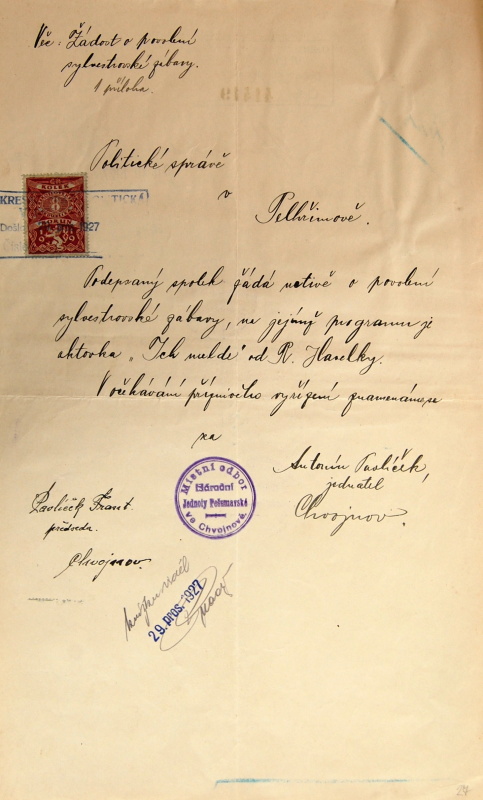 Věc: Žádost o povolení
sylvestrovské zábavy.
1 příloha.
Politické správě
v
Pelhřimově.
KOLEK
Podepsaný spolek žádá uctivě o povolení
sylvestrovské zábavy, na jejímž programu je
aktovka „Ich melde" od R. Havelky.
V očekávání příznivého vyřízení znamenáme se
za
Místní odbor
Národní
Jednoty Pošumavské
ve Chvojnově.
Antonín Pavlíček,
jednatel
Chvojnov.
Pavlíček Frant.
předseda
Chvojnov.
29. pros. 1927
27